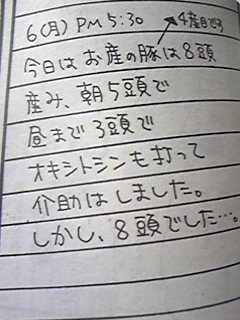 6(月) PM 5:30
4産目です
今日はお産の豚は8頭
産み、朝5頭で
昼まで3頭で
オキシトシンも打って
介助はしました。
しかし、8頭でした…。